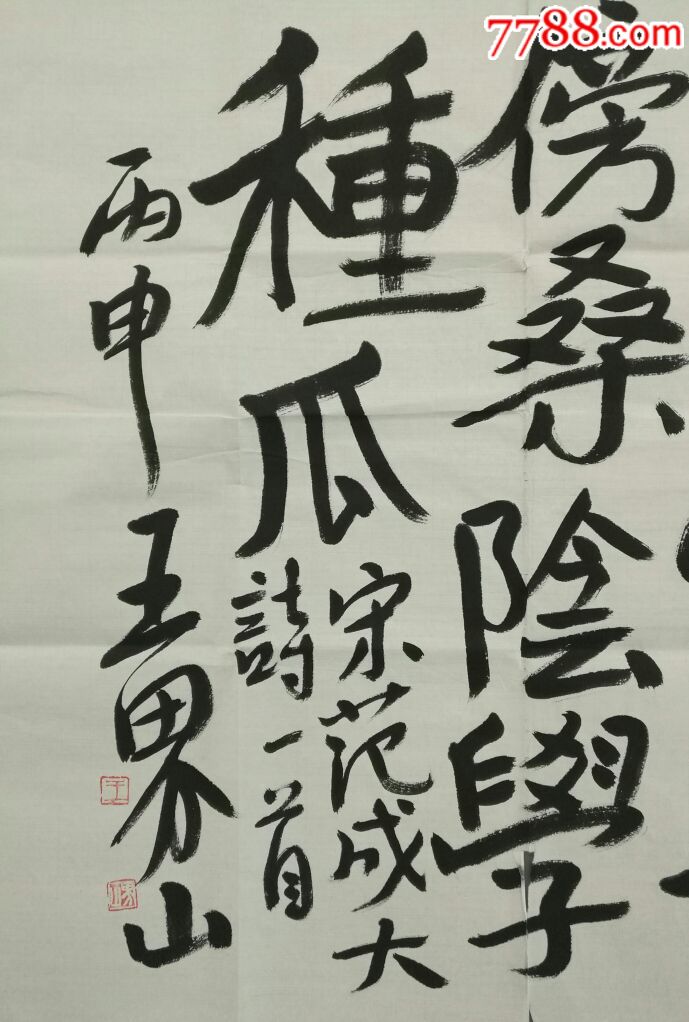 7788.com
傍桑陰學
種瓜
宋范成大
詩一首
丙申
王界山
王